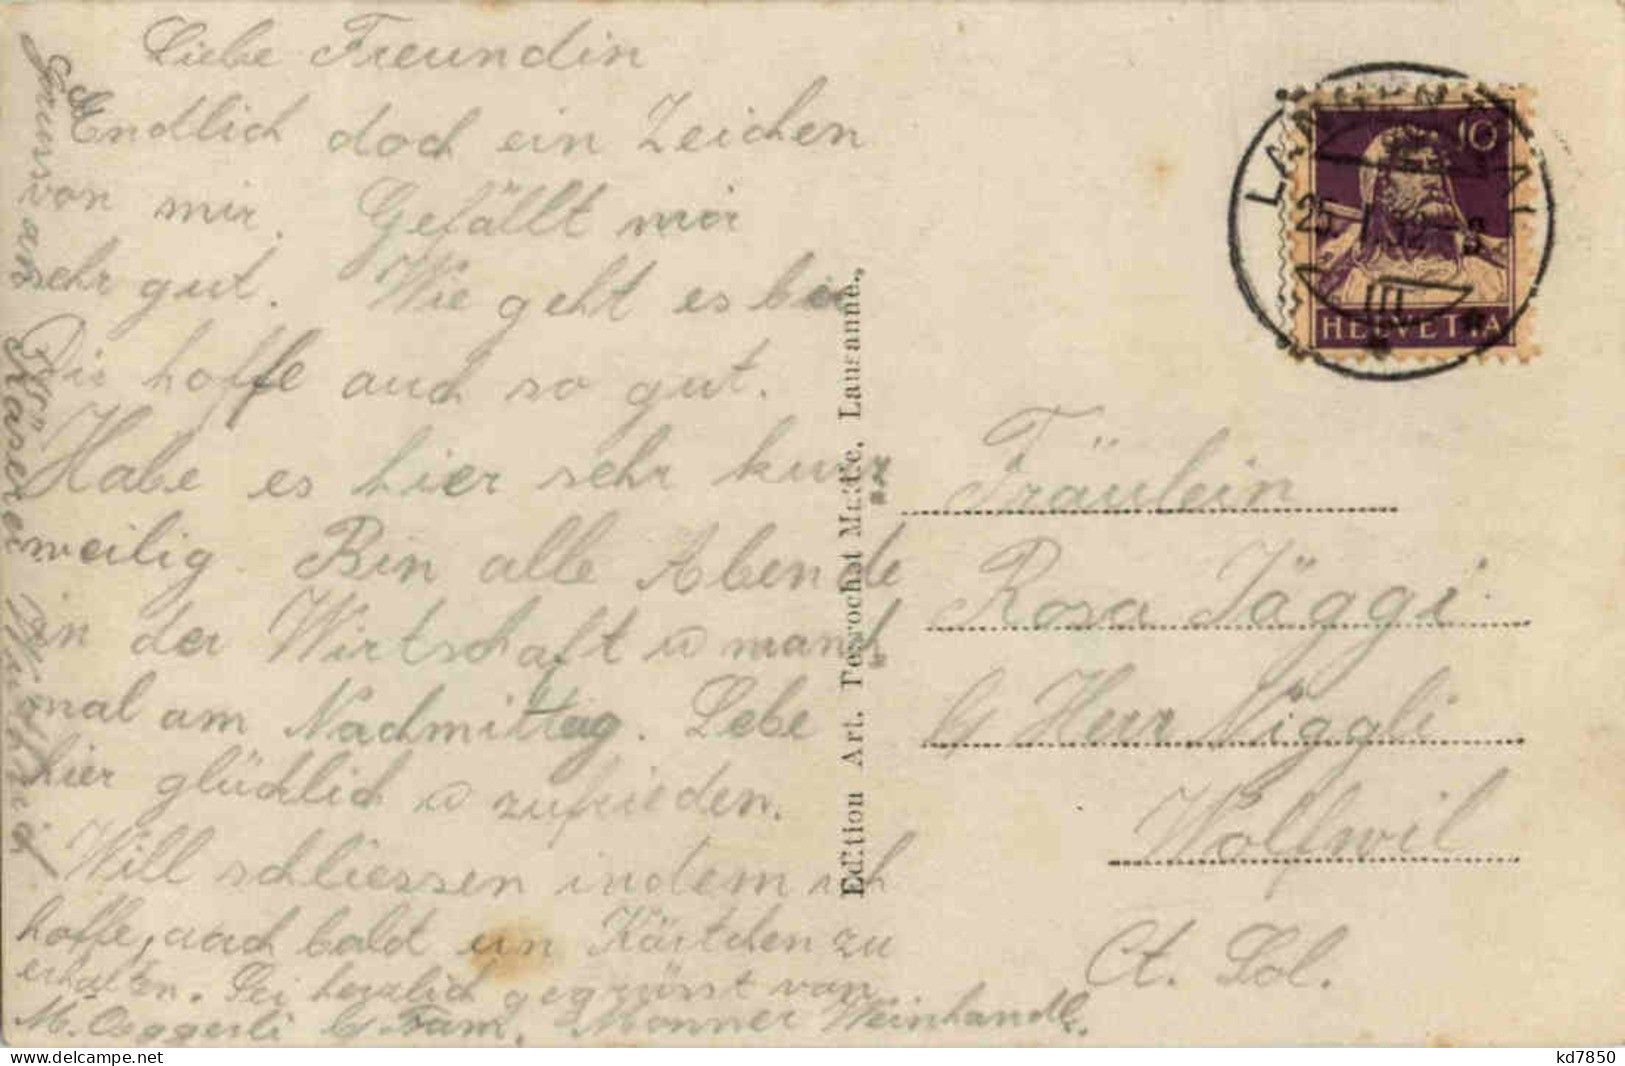 Liebe Freundin
Endlich doch ein Zeichen
von mir. Gefällt mir
sehr gut. Wie geht es bei
Dir hoffe auch so gut.
Habe es hier sehr kurz
weilig. Bin alle Abende
in der Wirtschaft u manch
mal am Nachmittag. Lebe
hier glücklich u zufrieden.
Will schliessen indem ich
hoffe, auch bald ein Kärtchen zu
erhalten. Sei herzlich gegrüsst von
M. Oeggerli b/ Fam. Monner Weinhandlg.
Gruss an
Käserei
Edition Art. Perrochet Matile, Lausanne.
LANGENTHAL
25. I. 32 - 8
10
HELVETIA
Fräulein
Rosa Jäggi
b/ Herr Niggli
Wolfwil
Ct. Sol.
www.delcampe.net
kd7850